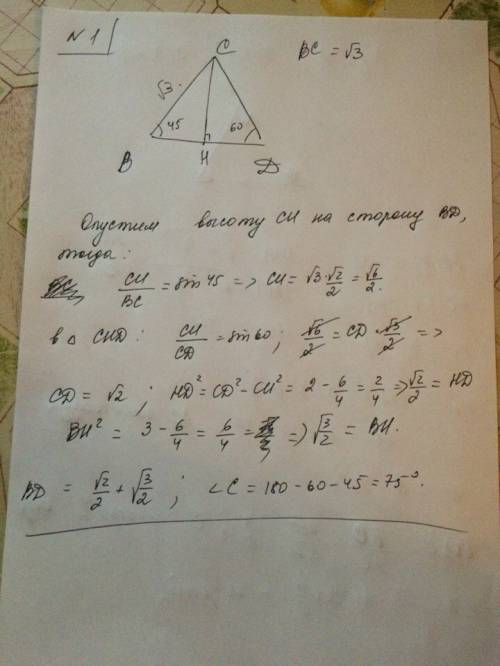 N 1
BC = √3
C
√3
45
60
B
H
D
Опустим высоту CH на сторону BD,
тогда:
CH/BC = sin 45 => CH = √3·√2/2 = √6/2.
в △ CHD: CH/CD = sin 60; √6/2 = CD·√3/2 =>
CD = √2; HD² = CD² - CH² = 2 - 6/4 = 2/4 => √2/2 = HD
BH² = 3 - 6/4 = 6/4 = => √3/2 = BH.
BD = √2/2 + √3/2; ∠C = 180 - 60 - 45 = 75°.